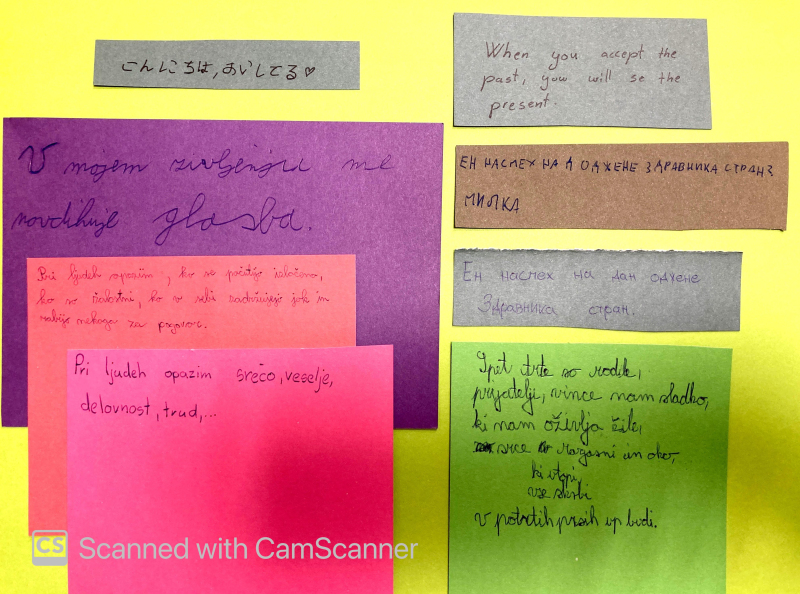 こんにちは,あいしてる♡
When you accept the
past, you will se the
present.
V mojem življenju me
navdihuje glasba.
ЕН НАСМЕХ НА Д ОДЖЕНЕ ЗДРАВНИКА СТРАНЗ
МИЛКА
Pri ljudeh opazim, ko se počutijo izločeno,
ko so žalostni, ko v sebi zadržujejo jok in
rabijo nekoga za pogovor.
Ен насмех на дан оджене
Здравника стран.
Pri ljudeh opazim srečo, veselje,
delovnost, trud,...
Spet trte so rodile,
prijatelji, vince nam sladko,
ki nam oživlja žile,
srce razjasni in oko,
ki utopi
vse skrbi
v potrtih prsih up budi.
CS Scanned with CamScanner